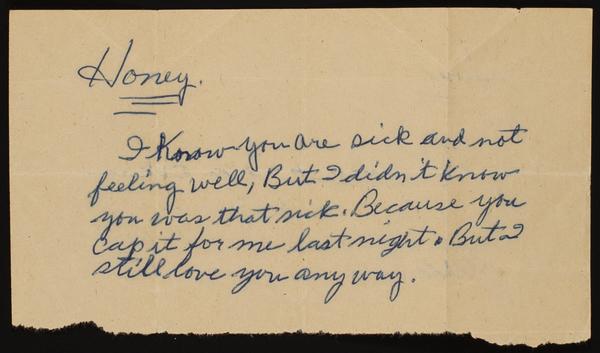 Honey.
I Know you are sick and not
feeling well, But I didn't Know
you was that sick. Because you
cap it for me last night. But I
still love you any way.